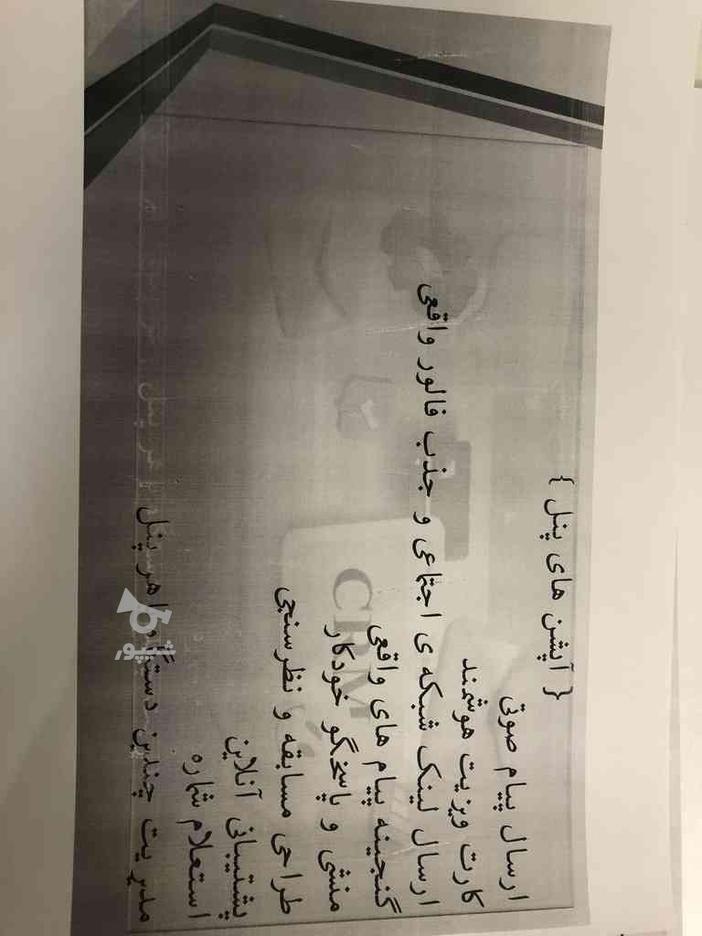 { آپشن های پنل }
ارسال پیام صوتی
کارت ویزیت هوشمند
ارسال لینک شبکه ی اجتماعی و جذب فالور واقعی
گنجینه پیام های واقعی
منشی و پاسخگو خودکار
طراحی مسابقه و نظرسنجی
پشتیبانی آنلاین
استعلام شماره
مدیریت چندین دستگاه با هر پنل
CRM
شیپور